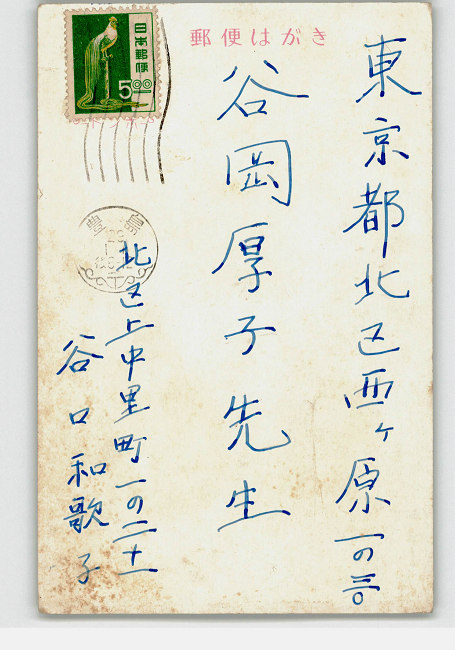 郵便はがき
日本郵便
5.00
東京都北区西ヶ原一の三〇
谷岡厚子先生
北区上中里町一の二十一
谷口和歌子
豊島